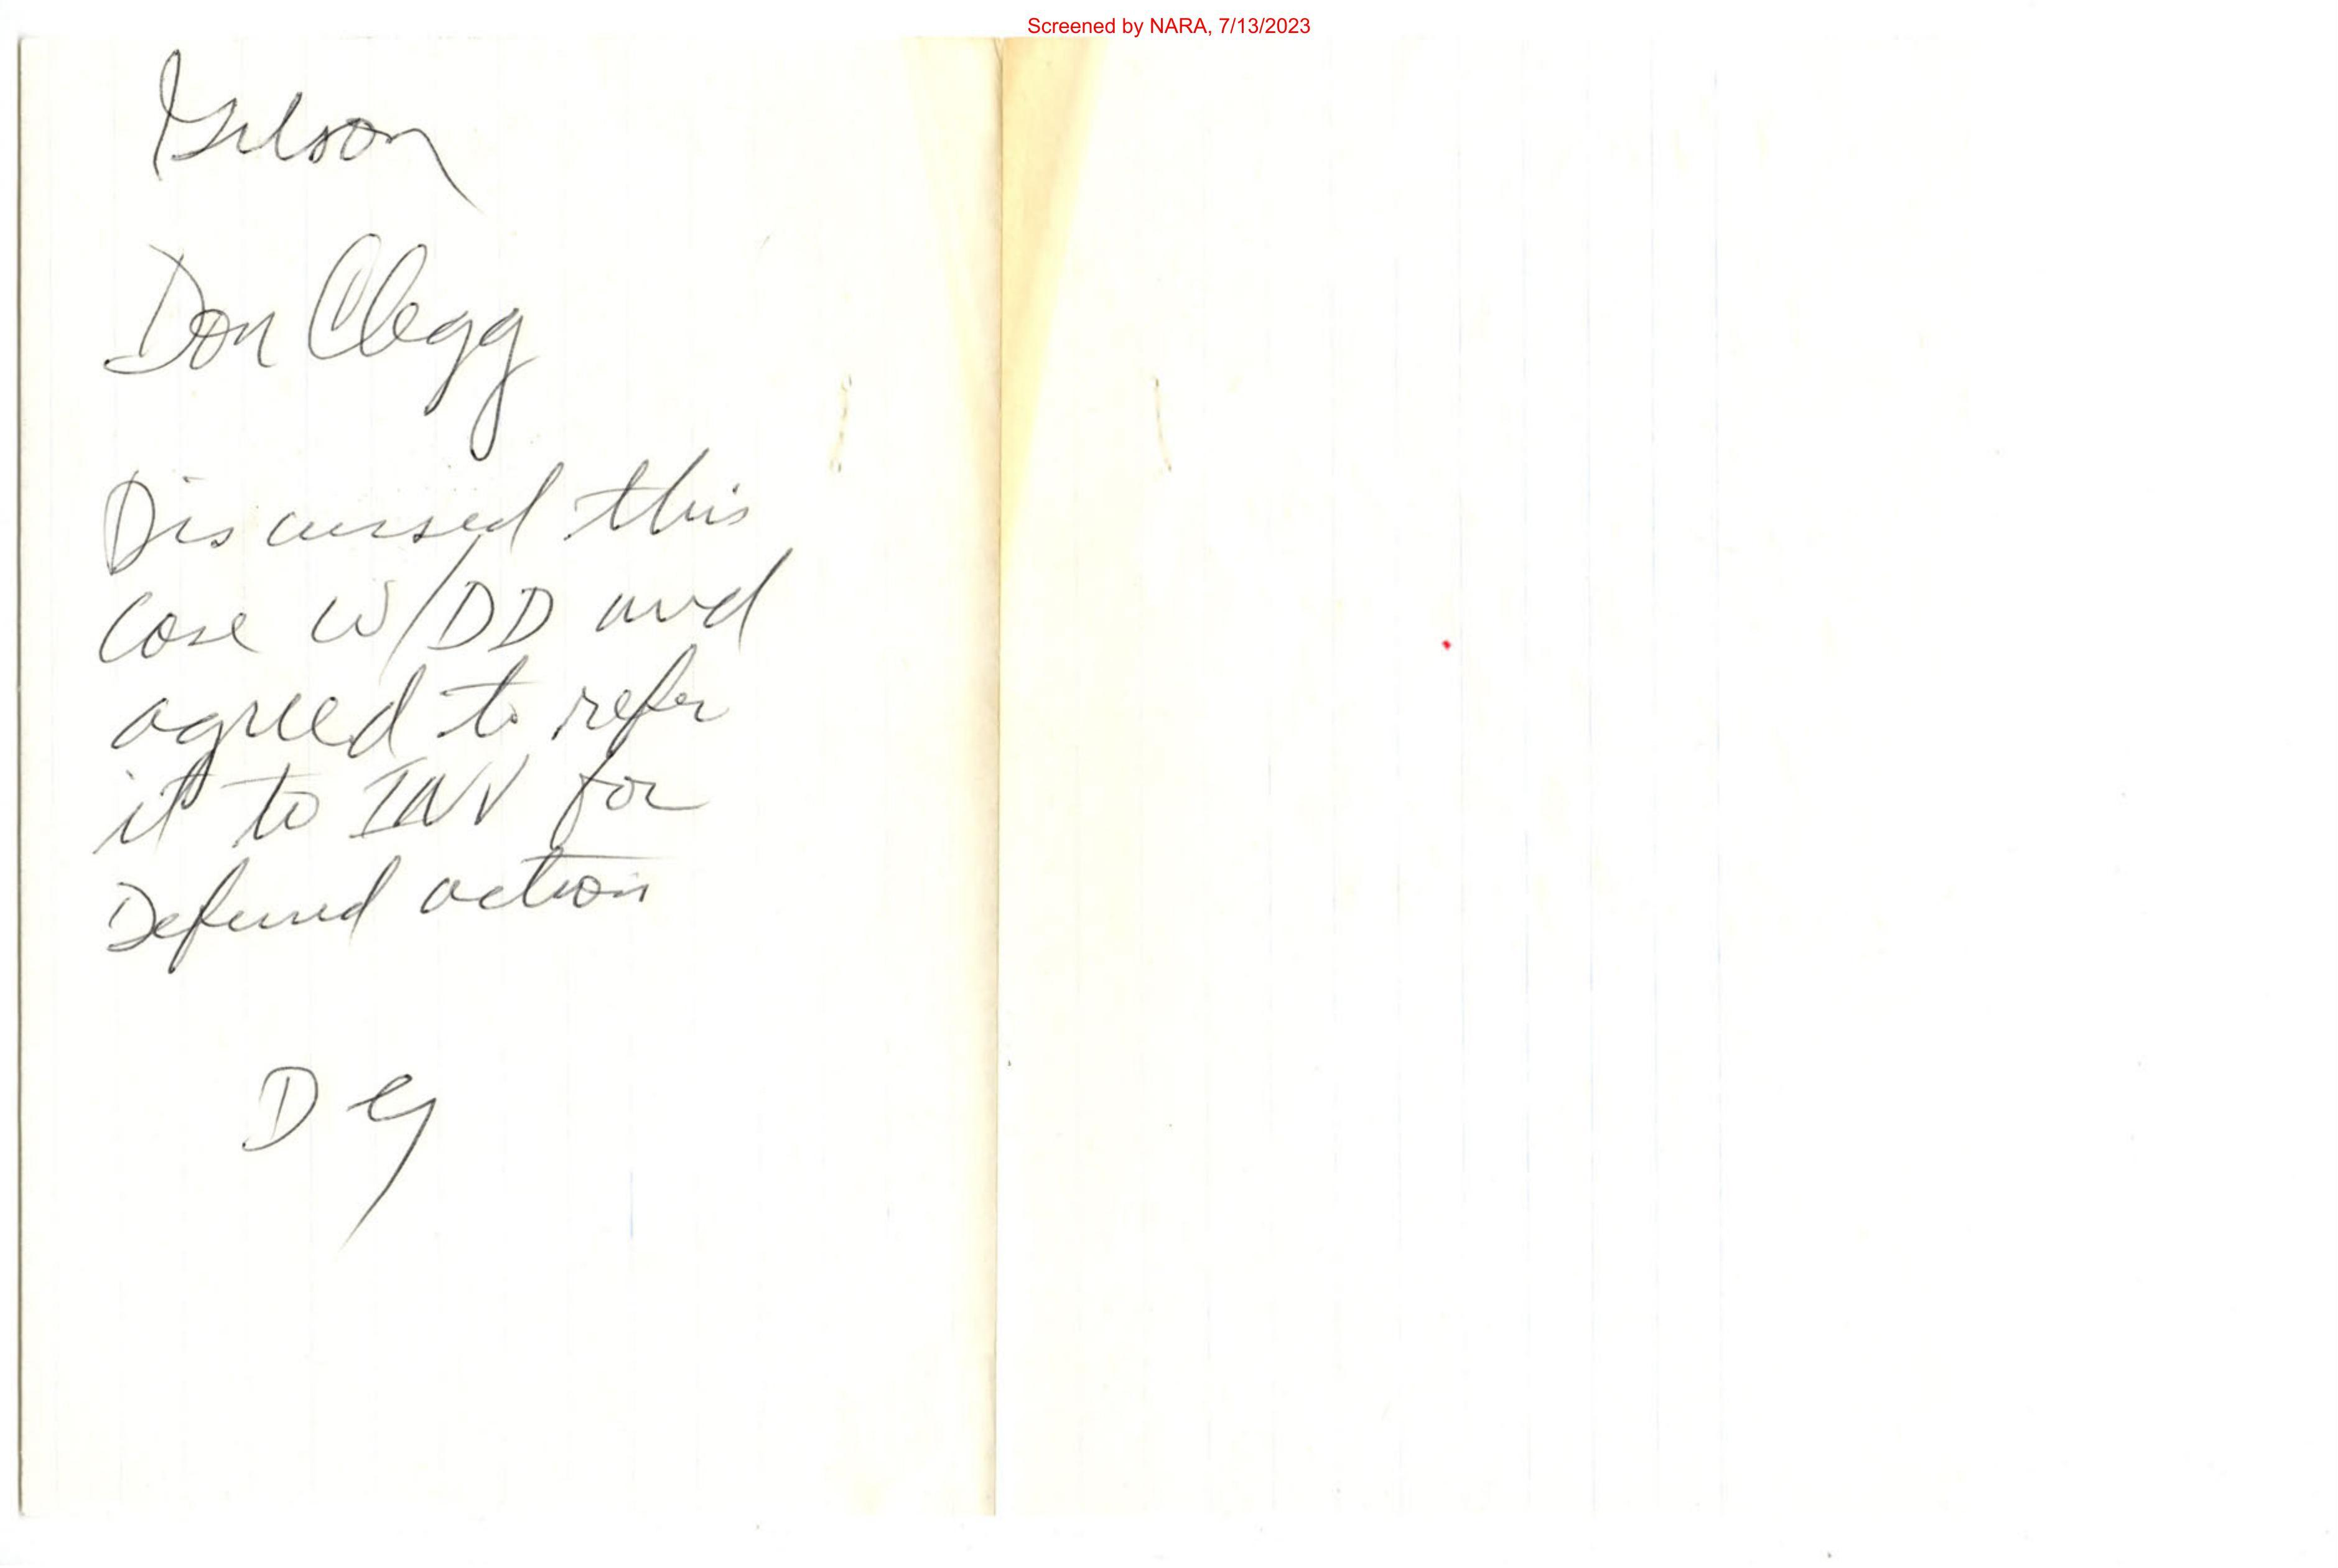 Screened by NARA, 7/13/2023
Don Clegg
Discussed this
Case W/DD and
agreed to refer
it to INV for
Deferred action